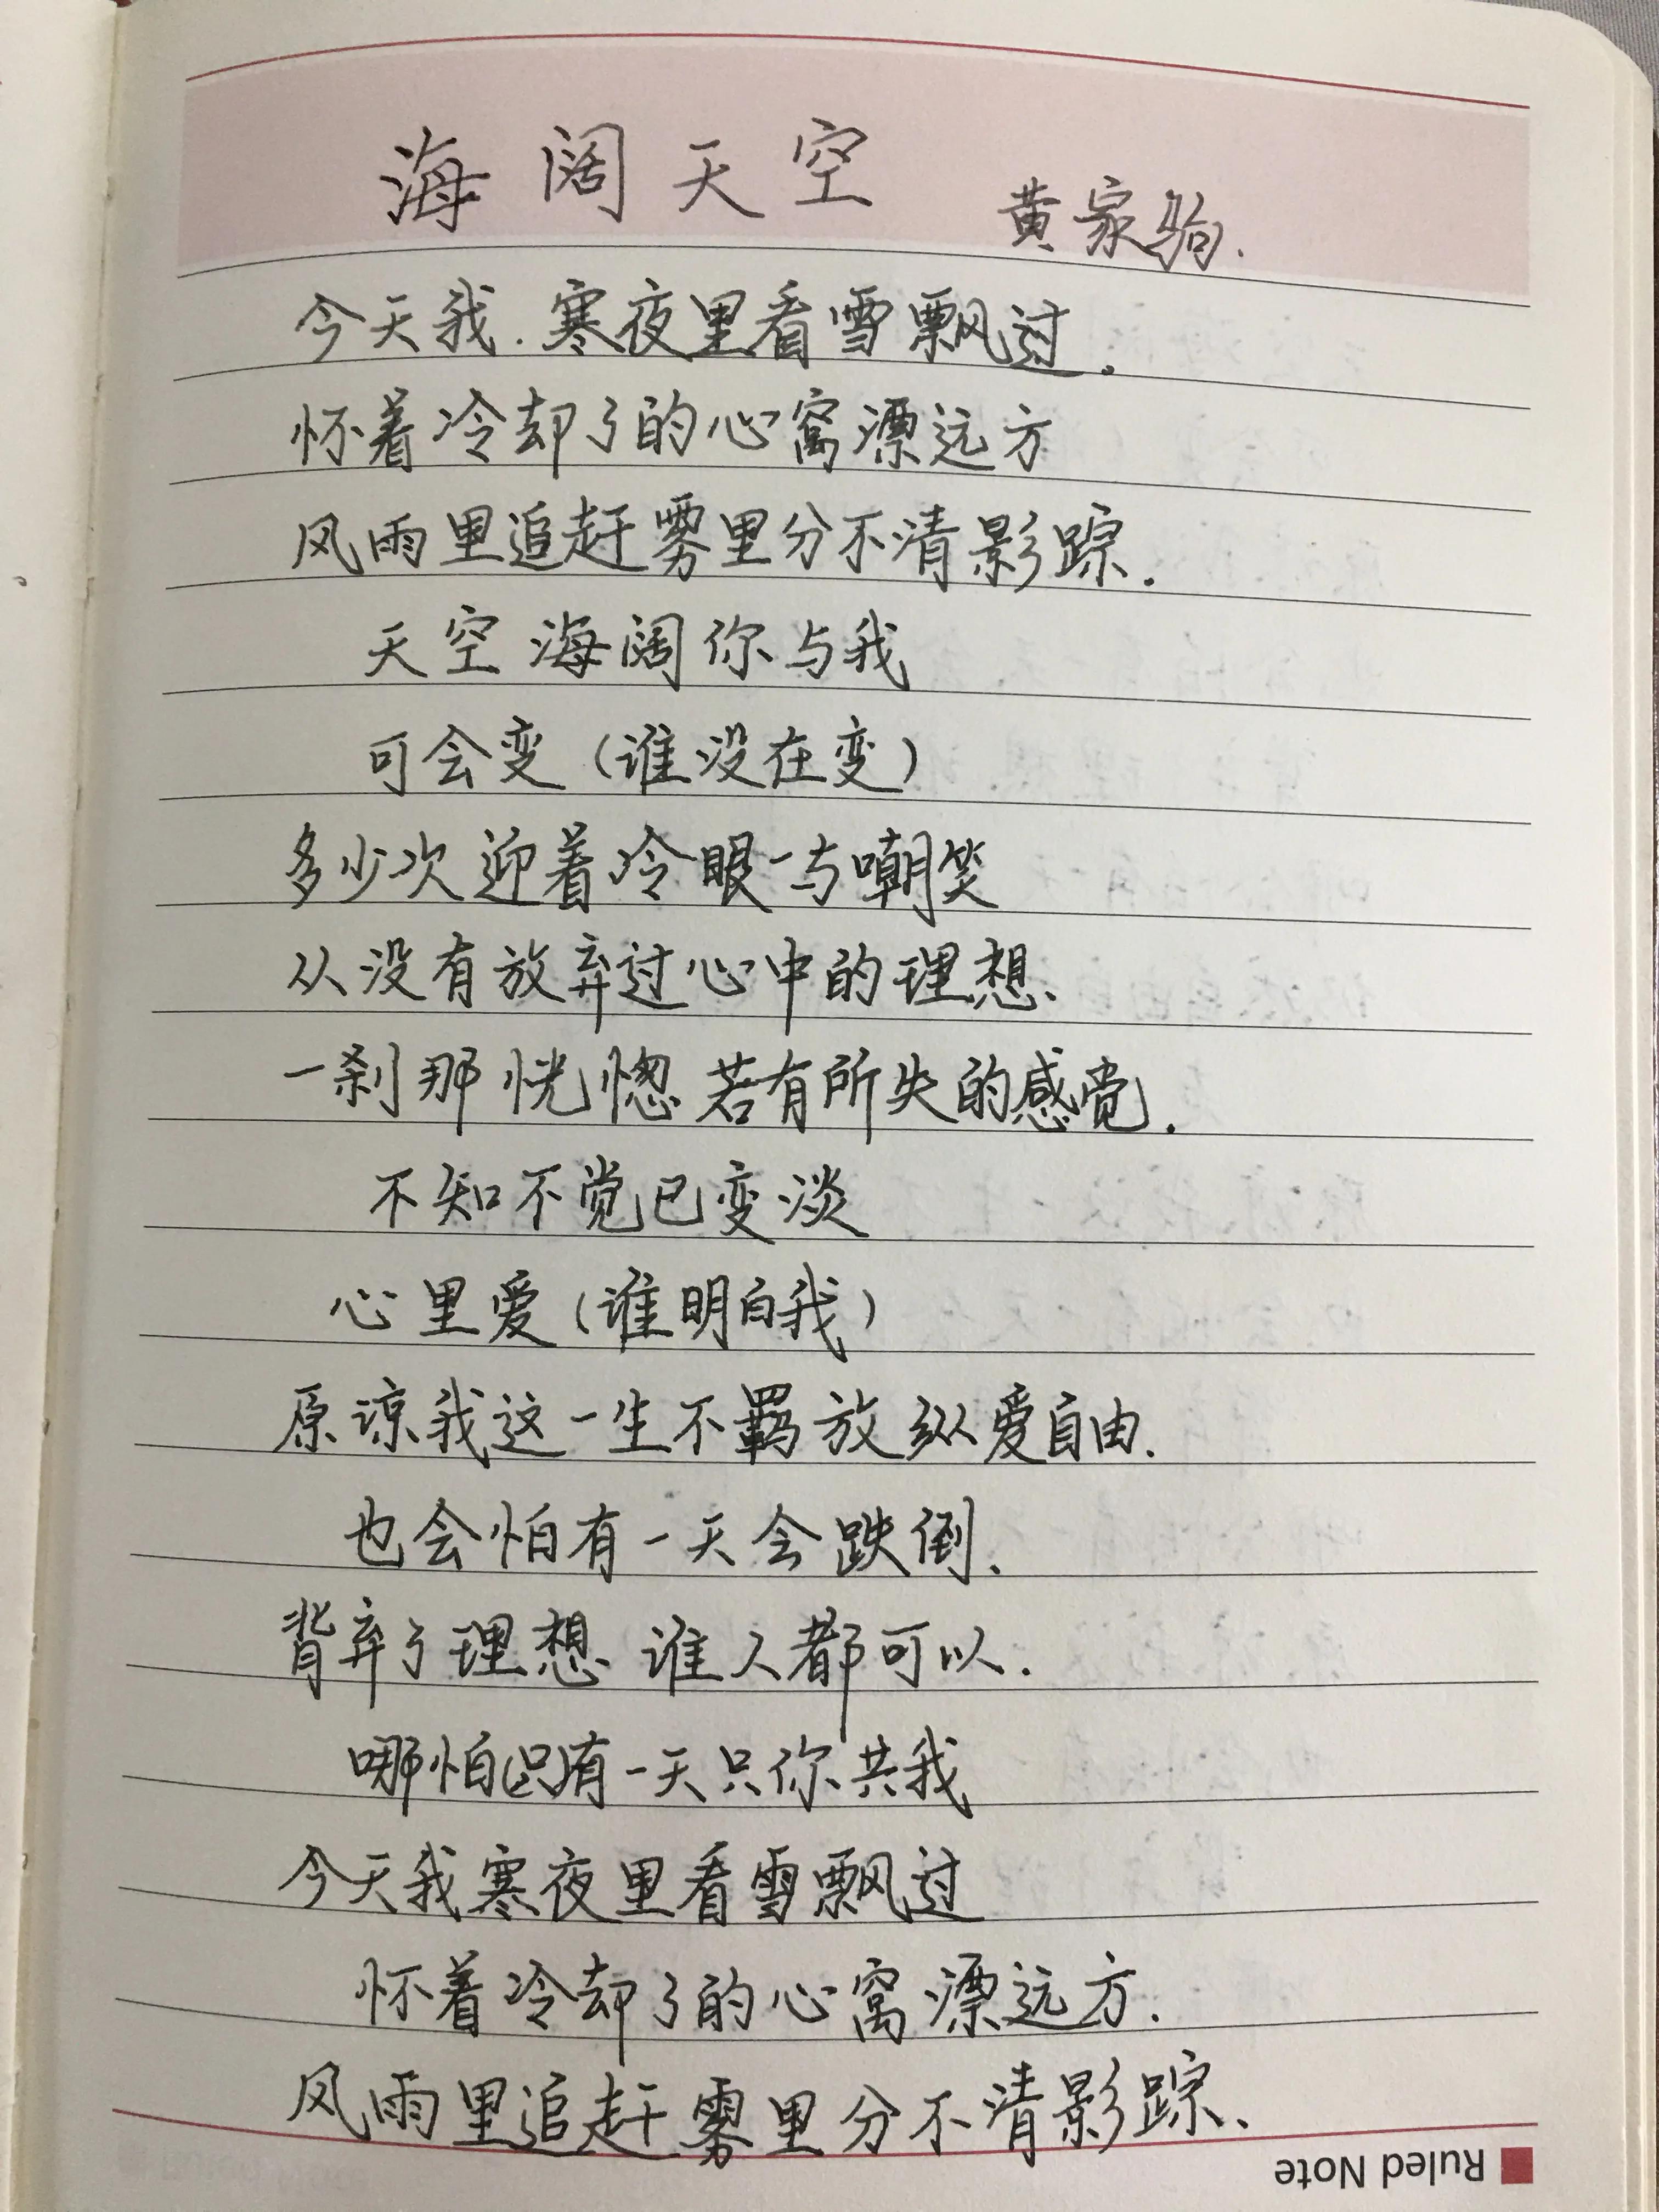 海阔天空 黄家驹.
今天我.寒夜里看雪飘过.
怀着冷却了的心窝漂远方
风雨里追赶雾里分不清影踪.
天空海阔你与我
可会变(谁没在变)
多少次迎着冷眼与嘲笑
从没有放弃过心中的理想、
一刹那恍惚 若有所失的感觉.
不知不觉已变淡
心里爱(谁明白我)
原谅我这一生不羁放纵爱自由.
也会怕有一天会跌倒、
背弃了理想、谁人都可以.
哪怕只有一天只你共我
今天我寒夜里看雪飘过
怀着冷却了的心窝漂远方.
风雨里追赶 雾里分不清影踪、
Ruled Note